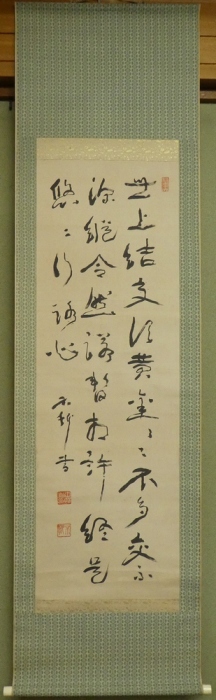 世上結交須黄金黄金不多交不
深縱令然諾暫相許終是
悠悠行路心